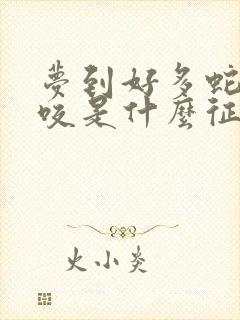 夢到好多蛇
咬是什麼征
火小炎